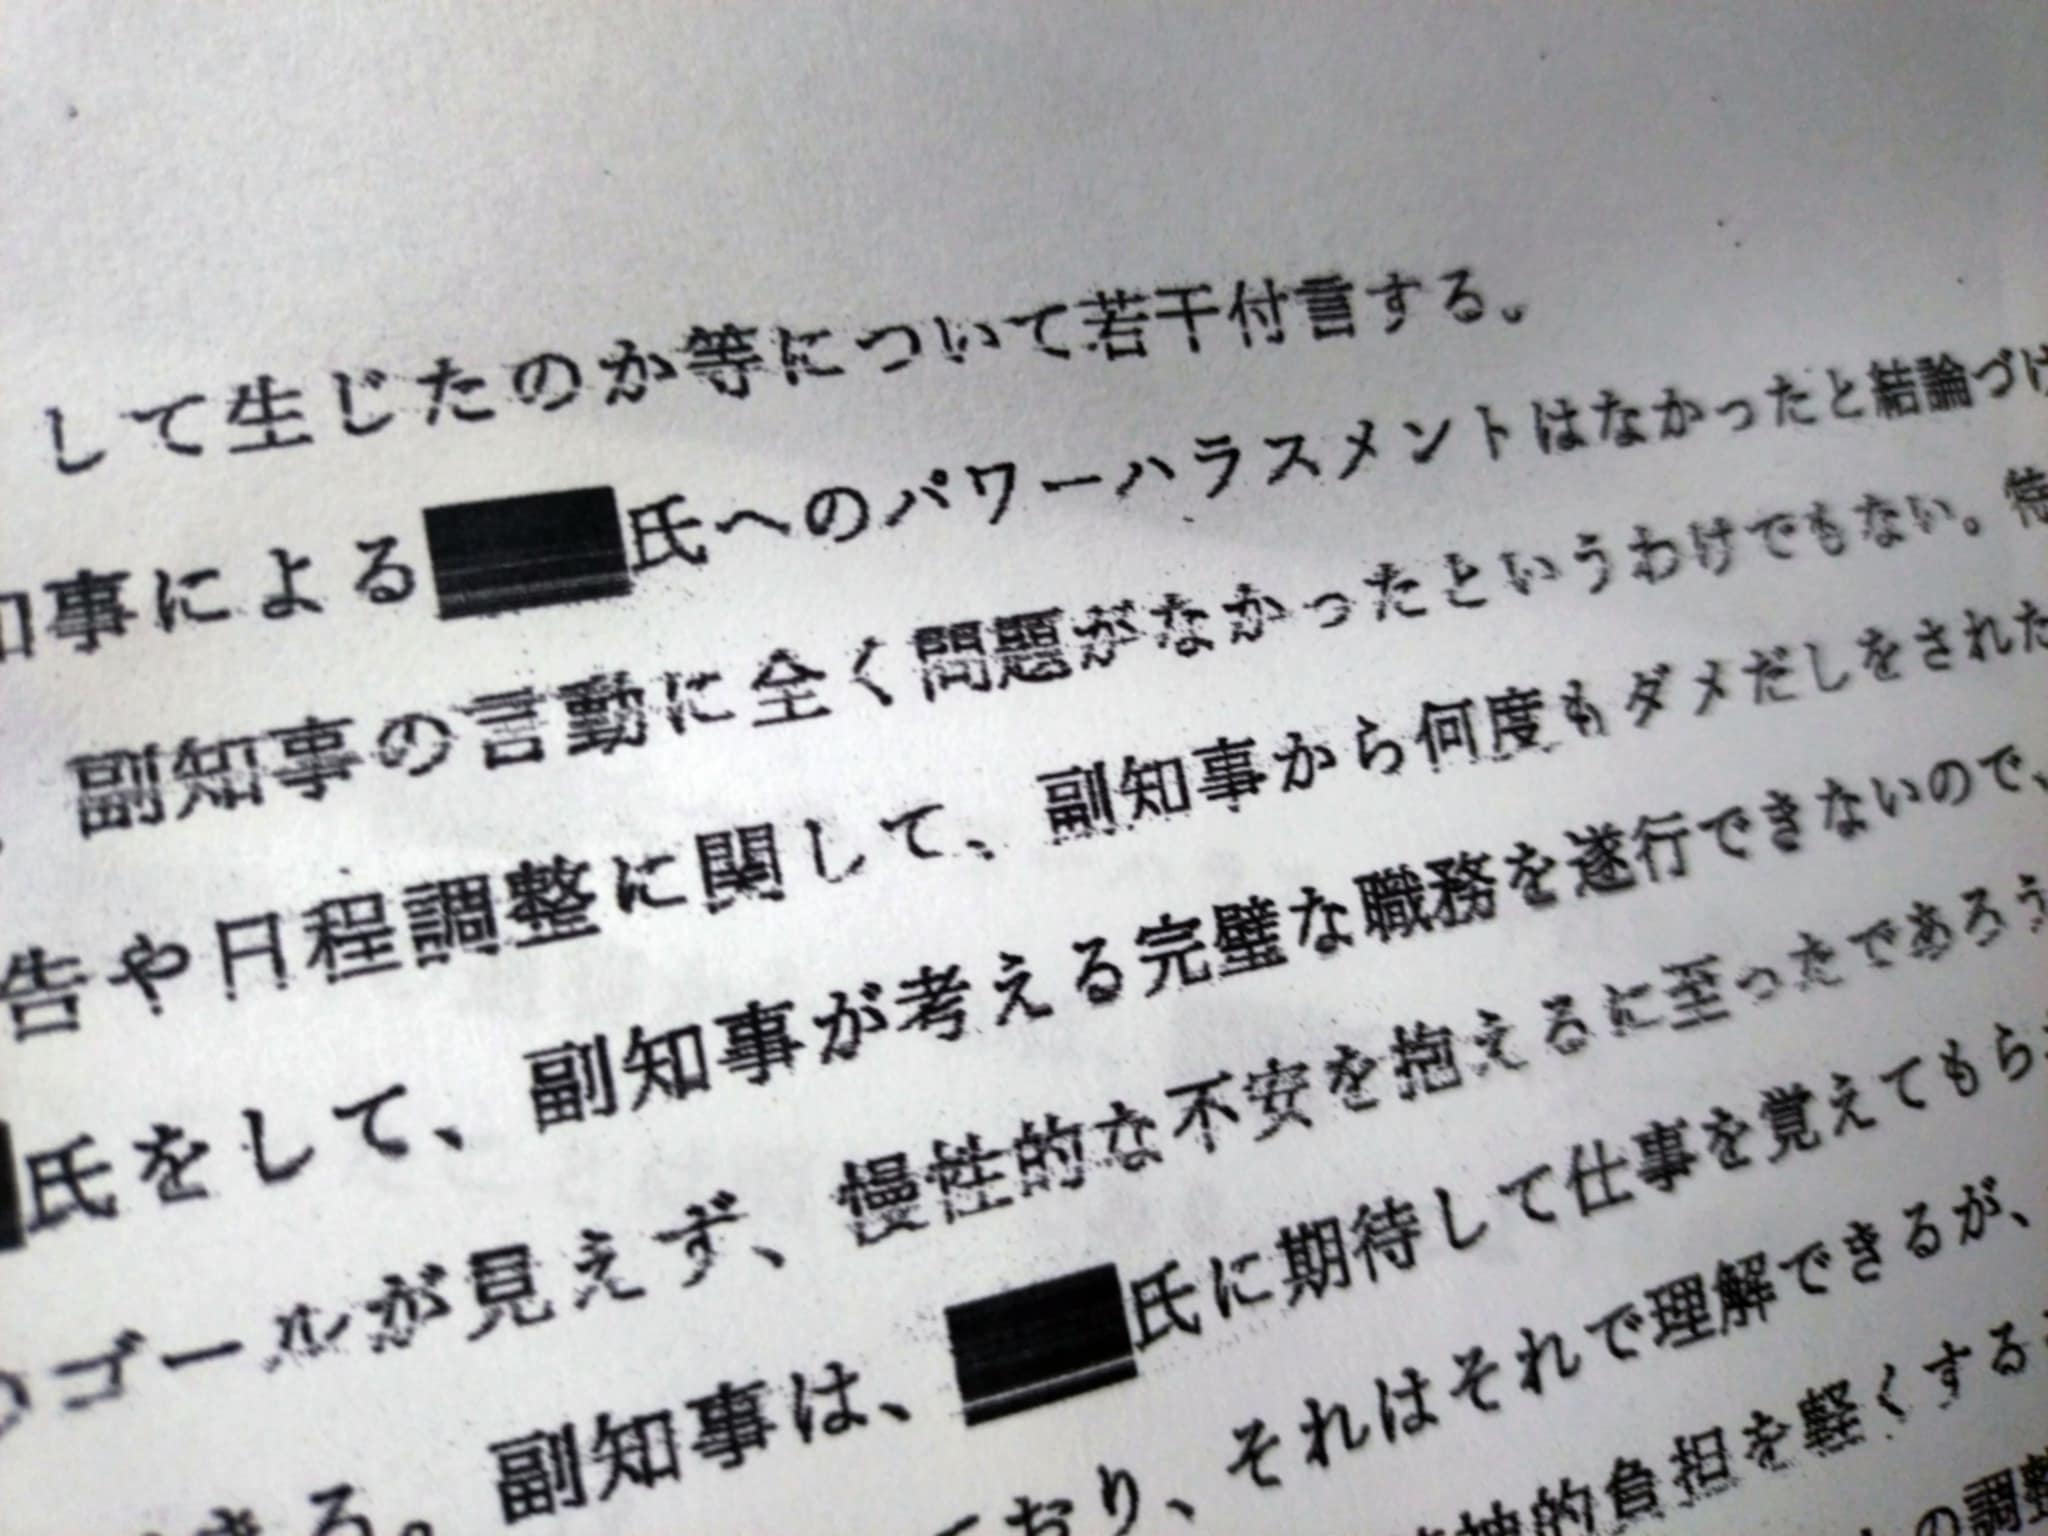 して生じたのか等について若干付言する。
知事による 氏へのパワーハラスメントはなかったと結論づけ
、副知事の言動に全く問題がなかったというわけでもない。
告や日程調整に関して、副知事から何度もダメだしをされた
氏をして、副知事が考える完璧な職務を遂行できないので、
のゴールが見えず、慢性的な不安を抱えるに至ったであろう
きる。副知事は、 氏に期待して仕事を覚えてもら
ており、それはそれで理解できるが、
精神的負担を軽くする
の調整